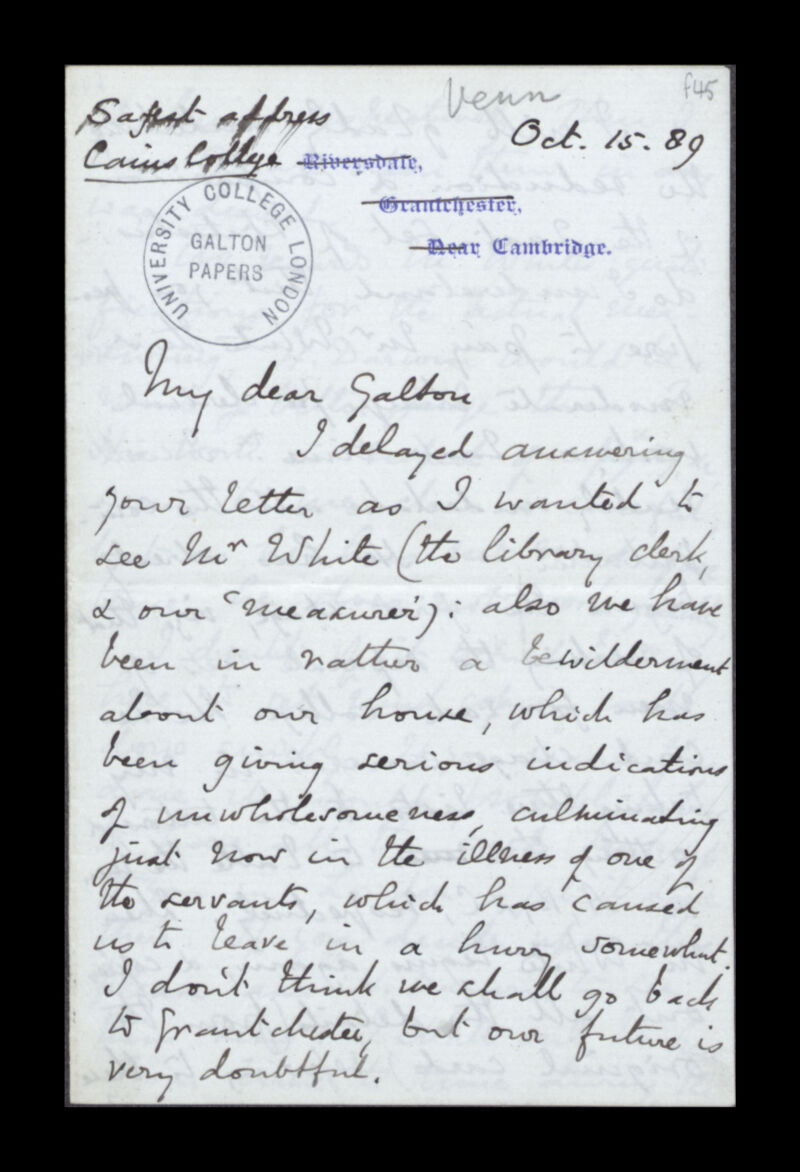 Venn
f45
Safest address
Caius College Riversdale,
Oct. 15. 89
Grantchester,
Near Cambridge.
UNIVERSITY COLLEGE LONDON
GALTON
PAPERS
My dear Galton
I delayed answering
your letter as I wanted to
see Mr White (the library clerk,
& our 'measurer'): also we have
been in rather a bewilderment
about our house, which has
been giving serious indications
of unwholesomeness, culminating
just now in the illness of one of
the servants, which has caused
us to leave in a hurry somewhat.
I don't think we shall go back
to Grantchester, but our future is
very doubtful.